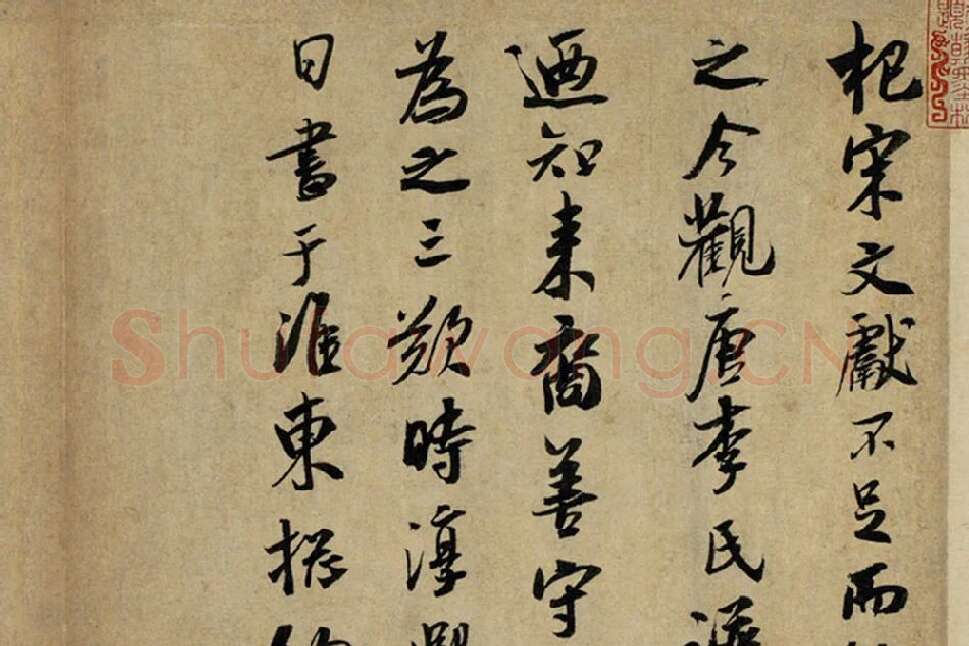 杞宋文獻不足而
之今觀唐李氏
迺知來裔善守
為之三歎時淳熙
日書于淮東
Shufawang.CN